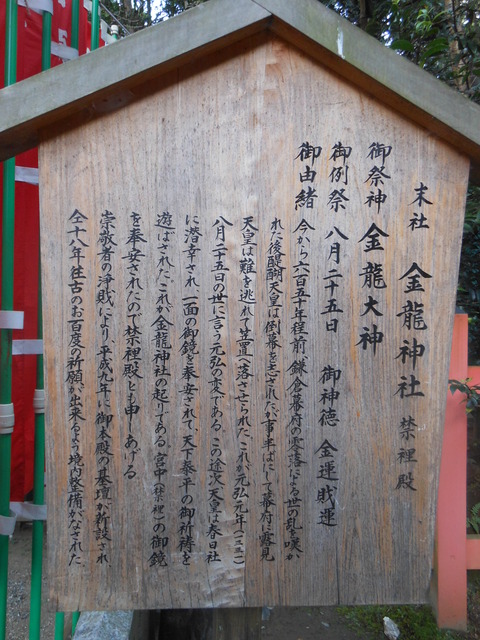 末社 金龍神社 禁裡殿
御祭神 金龍大神
御例祭 八月二十五日 御神徳 金運財運
御由緒 今から六百五十年程前、鎌倉幕府の零落による世の乱を嘆か
れた後醍醐天皇は倒幕を志されたが事半ばにして幕府に露見
天皇は難を逃れて笠置へ落させられた、これが元弘元年(一三三一)
八月二十五日の世に言う元弘の変である。この途次天皇は春日社
に潜幸され、一面の御鏡を奉安されて、天下泰平の御祈祷を
遊ばされた。これが金龍神社の起りである。宮中(禁裡)の御鏡
を奉安されたので禁裡殿とも申しあげる。
崇敬者の浄財により、平成九年に御本殿の基壇が新設され
仝十八年往古のお百度の祈願が出来るよう境内整備がなされた